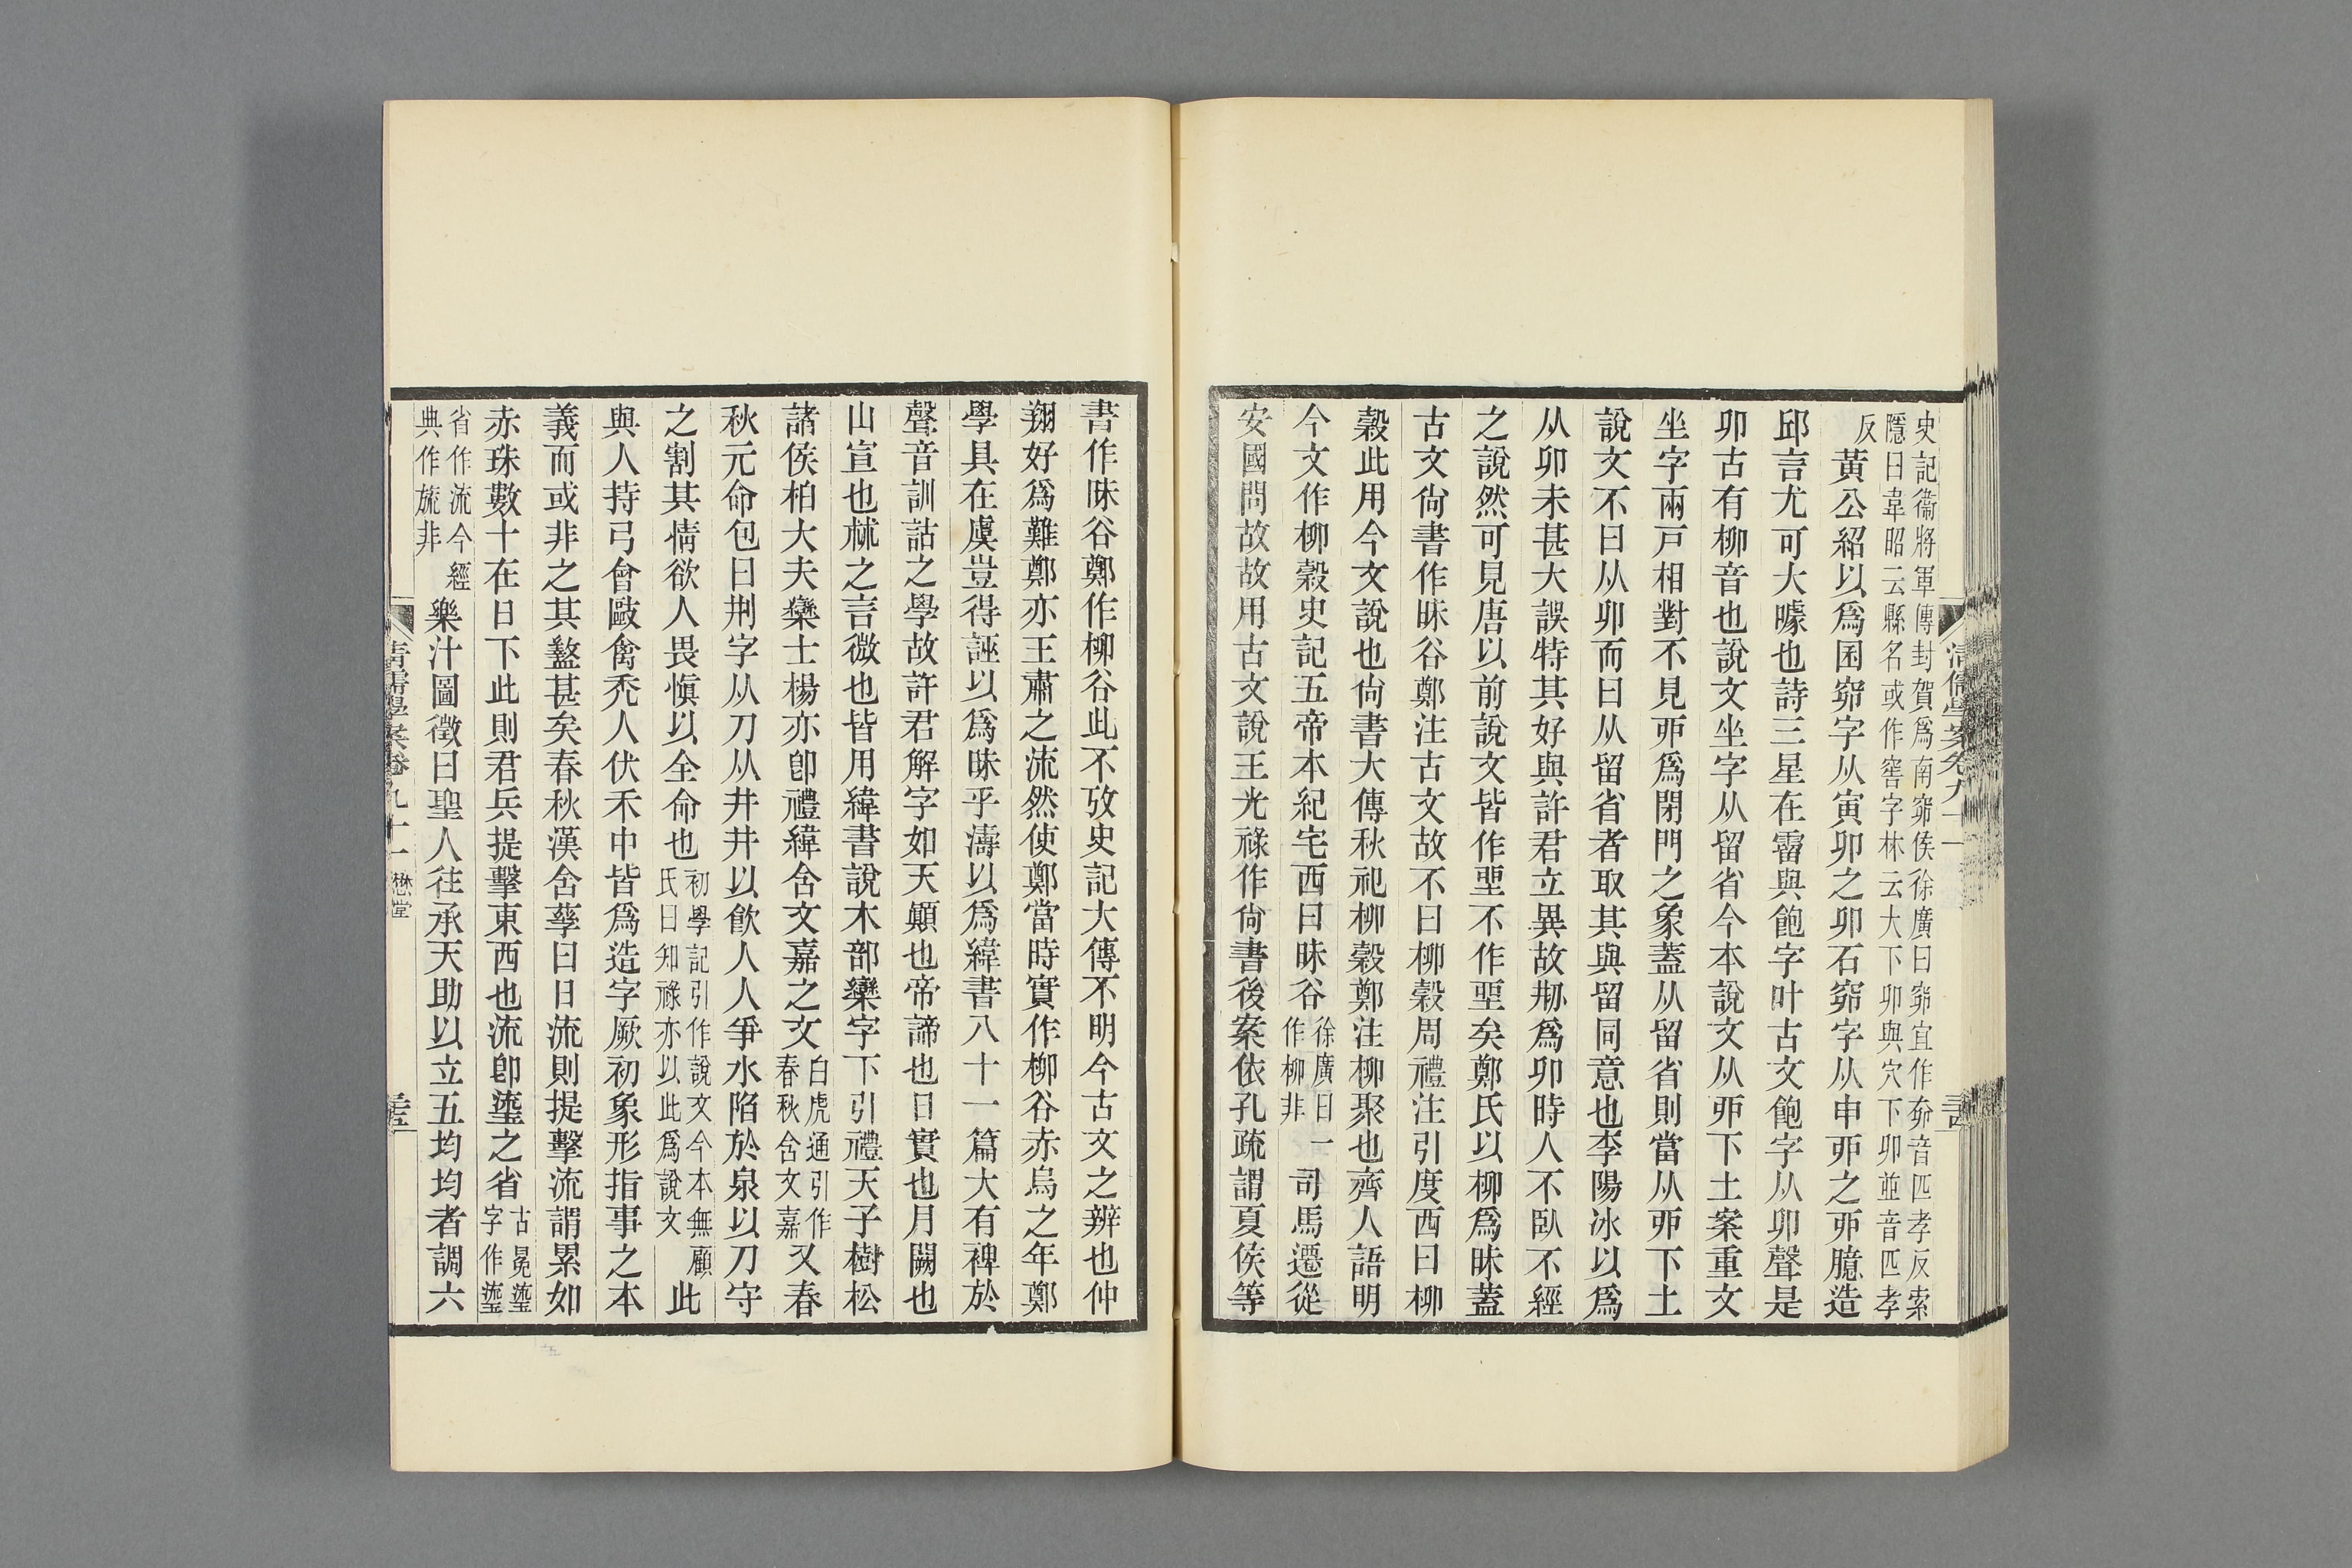 史記衞將軍傳封賀爲南窌侯徐廣曰窌宜作奅音匹孝反索
隱曰韋昭云縣名或作窖字林云大下卯與穴下卯並音匹孝
反
黃公紹以爲囷窌字从寅卯之卯石窌字从申丣之丣臆造
邱言尤可大噱也詩三星在霤與飽字叶古文飽字从卯聲是
卯古有柳音也說文坐字从留省今本說文从丣下土案重文
坐字兩戸相對不見丣爲閉門之象蓋从留省則當从丣下土
說文不曰从卯而曰从留省者取其與留同意也李陽冰以爲
从卯未甚大誤特其好與許君立異故剙爲卯時人不臥不經
之說然可見唐以前說文皆作坙不作坙矣鄭氏以柳爲昧蓋
古文尙書作昧谷鄭注古文故不曰柳穀周禮注引度西曰柳
穀此用今文說也尙書大傳秋祀柳穀鄭注柳聚也齊人語明
今文作柳穀史記五帝本紀宅西曰昧谷
徐廣曰一
作柳非
司馬遷從
安國問故故用古文說王光祿作尙書後案依孔疏謂夏侯等
清儒學案卷九十一
三五
書作昧谷鄭作柳谷此不攷史記大傳不明今古文之辨也仲
翔好爲難鄭亦王肅之流然使鄭當時實作柳谷赤烏之年鄭
學具在虞豈得誣以爲昧乎濤以爲緯書八十一篇大有裨於
聲音訓詁之學故許君解字如天顚也帝諦也日實也月闕也
山宣也秫之言微也皆用緯書說木部欒字下引禮天子樹松
諸侯柏大夫欒士楊亦卽禮緯含文嘉之文
白虎通引作
春秋含文嘉
又春
秋元命包曰荆字从刀从井井以飮人人爭水陷於泉以刀守
之割其情欲人畏愼以全命也
初學記引作說文今本無顧
氏日知祿亦以此爲說文
此
與人持弓會敺禽禿人伏禾中皆爲造字厥初象形指事之本
義而或非之其盭甚矣春秋漢含孳曰日流則提擊流謂累如
赤珠數十在日下此則君兵提擊東西也流卽鎏之省
古冕鎏
字作鎏
省作流今經
典作旒非
樂汁圖徵曰聖人往承天助以立五均均者調六
清儒學案卷九十一 懋堂
三五